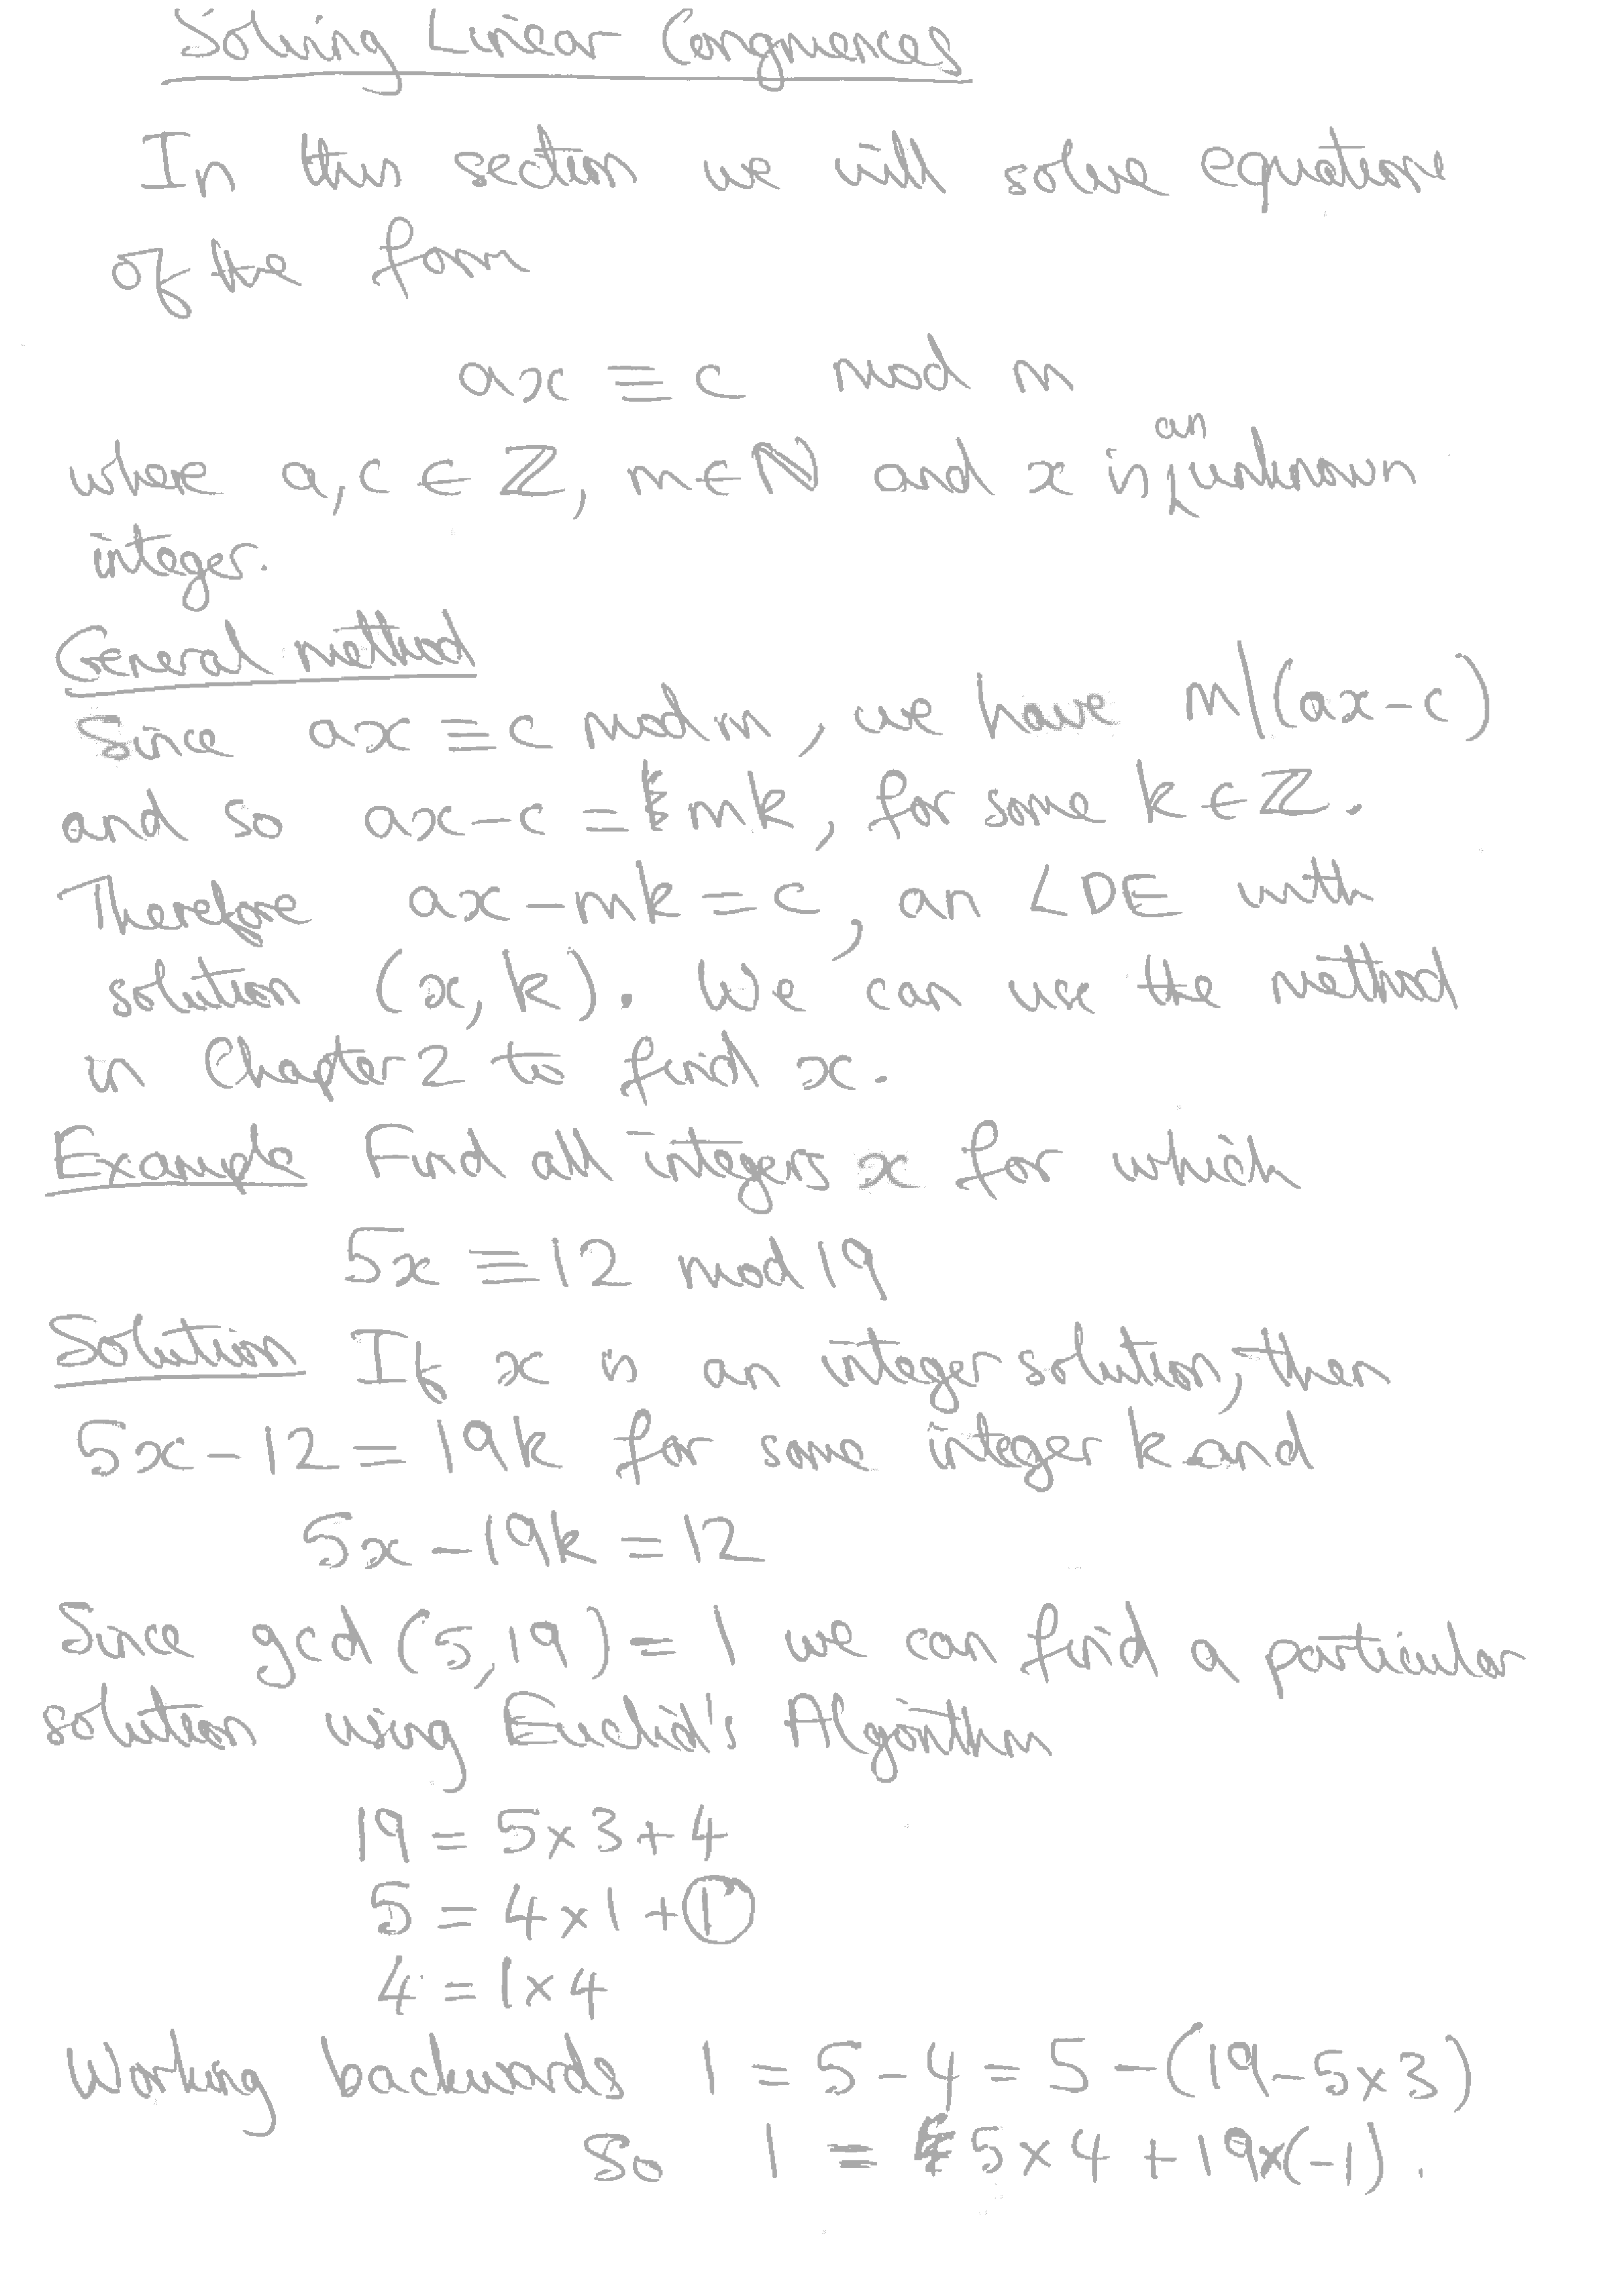 Solving Linear Congruences
In this section we will solve equations
of the form
ax ≡ c mod m
where a, c ∈ ℤ, m ∈ ℕ and x is an unknown
integer.
General method
Since ax ≡ c mod m, we have m|(ax-c)
and so ax-c = mk, for some k ∈ ℤ.
Therefore ax-mk = c, an LDE with
solution (x, k). We can use the method
in Chapter 2 to find x.
Example Find all integers x for which
5x ≡ 12 mod 19
Solution If x is an integer solution, then
5x - 12 = 19k for some integer k and
5x - 19k = 12
Since gcd (5,19) = 1 we can find a particular
solution using Euclid's Algorithm
19 = 5 × 3 + 4
5 = 4 × 1 + 1
4 = 1 × 4
Working backwards 1 = 5 - 4 = 5 - (19 - 5 × 3)
So 1 = 5 × 4 + 19 × (-1).